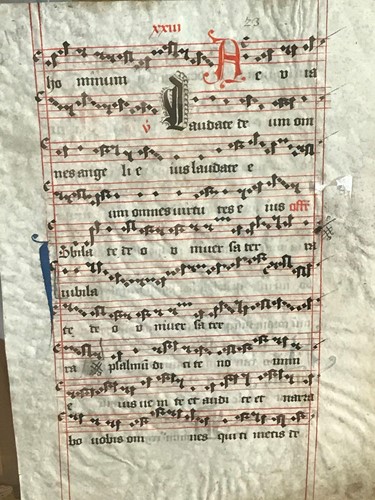 xxiii 23
ho minum A e v ia
℣ Laudate de um om
nes ange li e ius laudate e
um omnes virtu tes e ius offe
Jubila te de o v niver sa ter ra
iubila
te de o v niver sa ter
ra psalmū di ci te no mini
ius ve ni te et audi te et narra
bo vobis om nes qui ti metis de